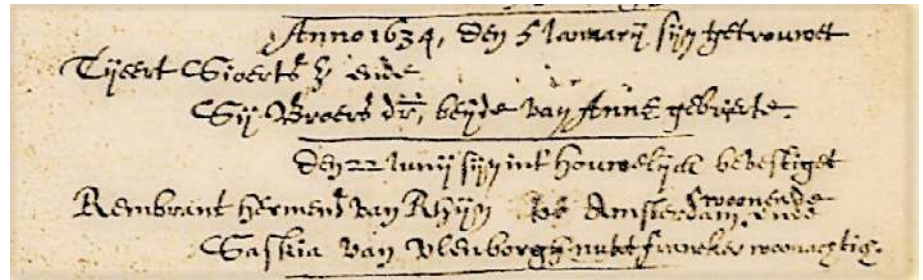 Anno 1634, den 5 Januarij sijn getrouwet
Tijeert Sioerts z ende
Sij Broers dr, beijde van Anne gebuerte.
den 22 Junij sijn int houwelijck bevestiget
Rembrant Hermens van Rhijn tot Amsterdam woonende ende
Saskia van Ulenborgh nu tot franeker woonachtig.